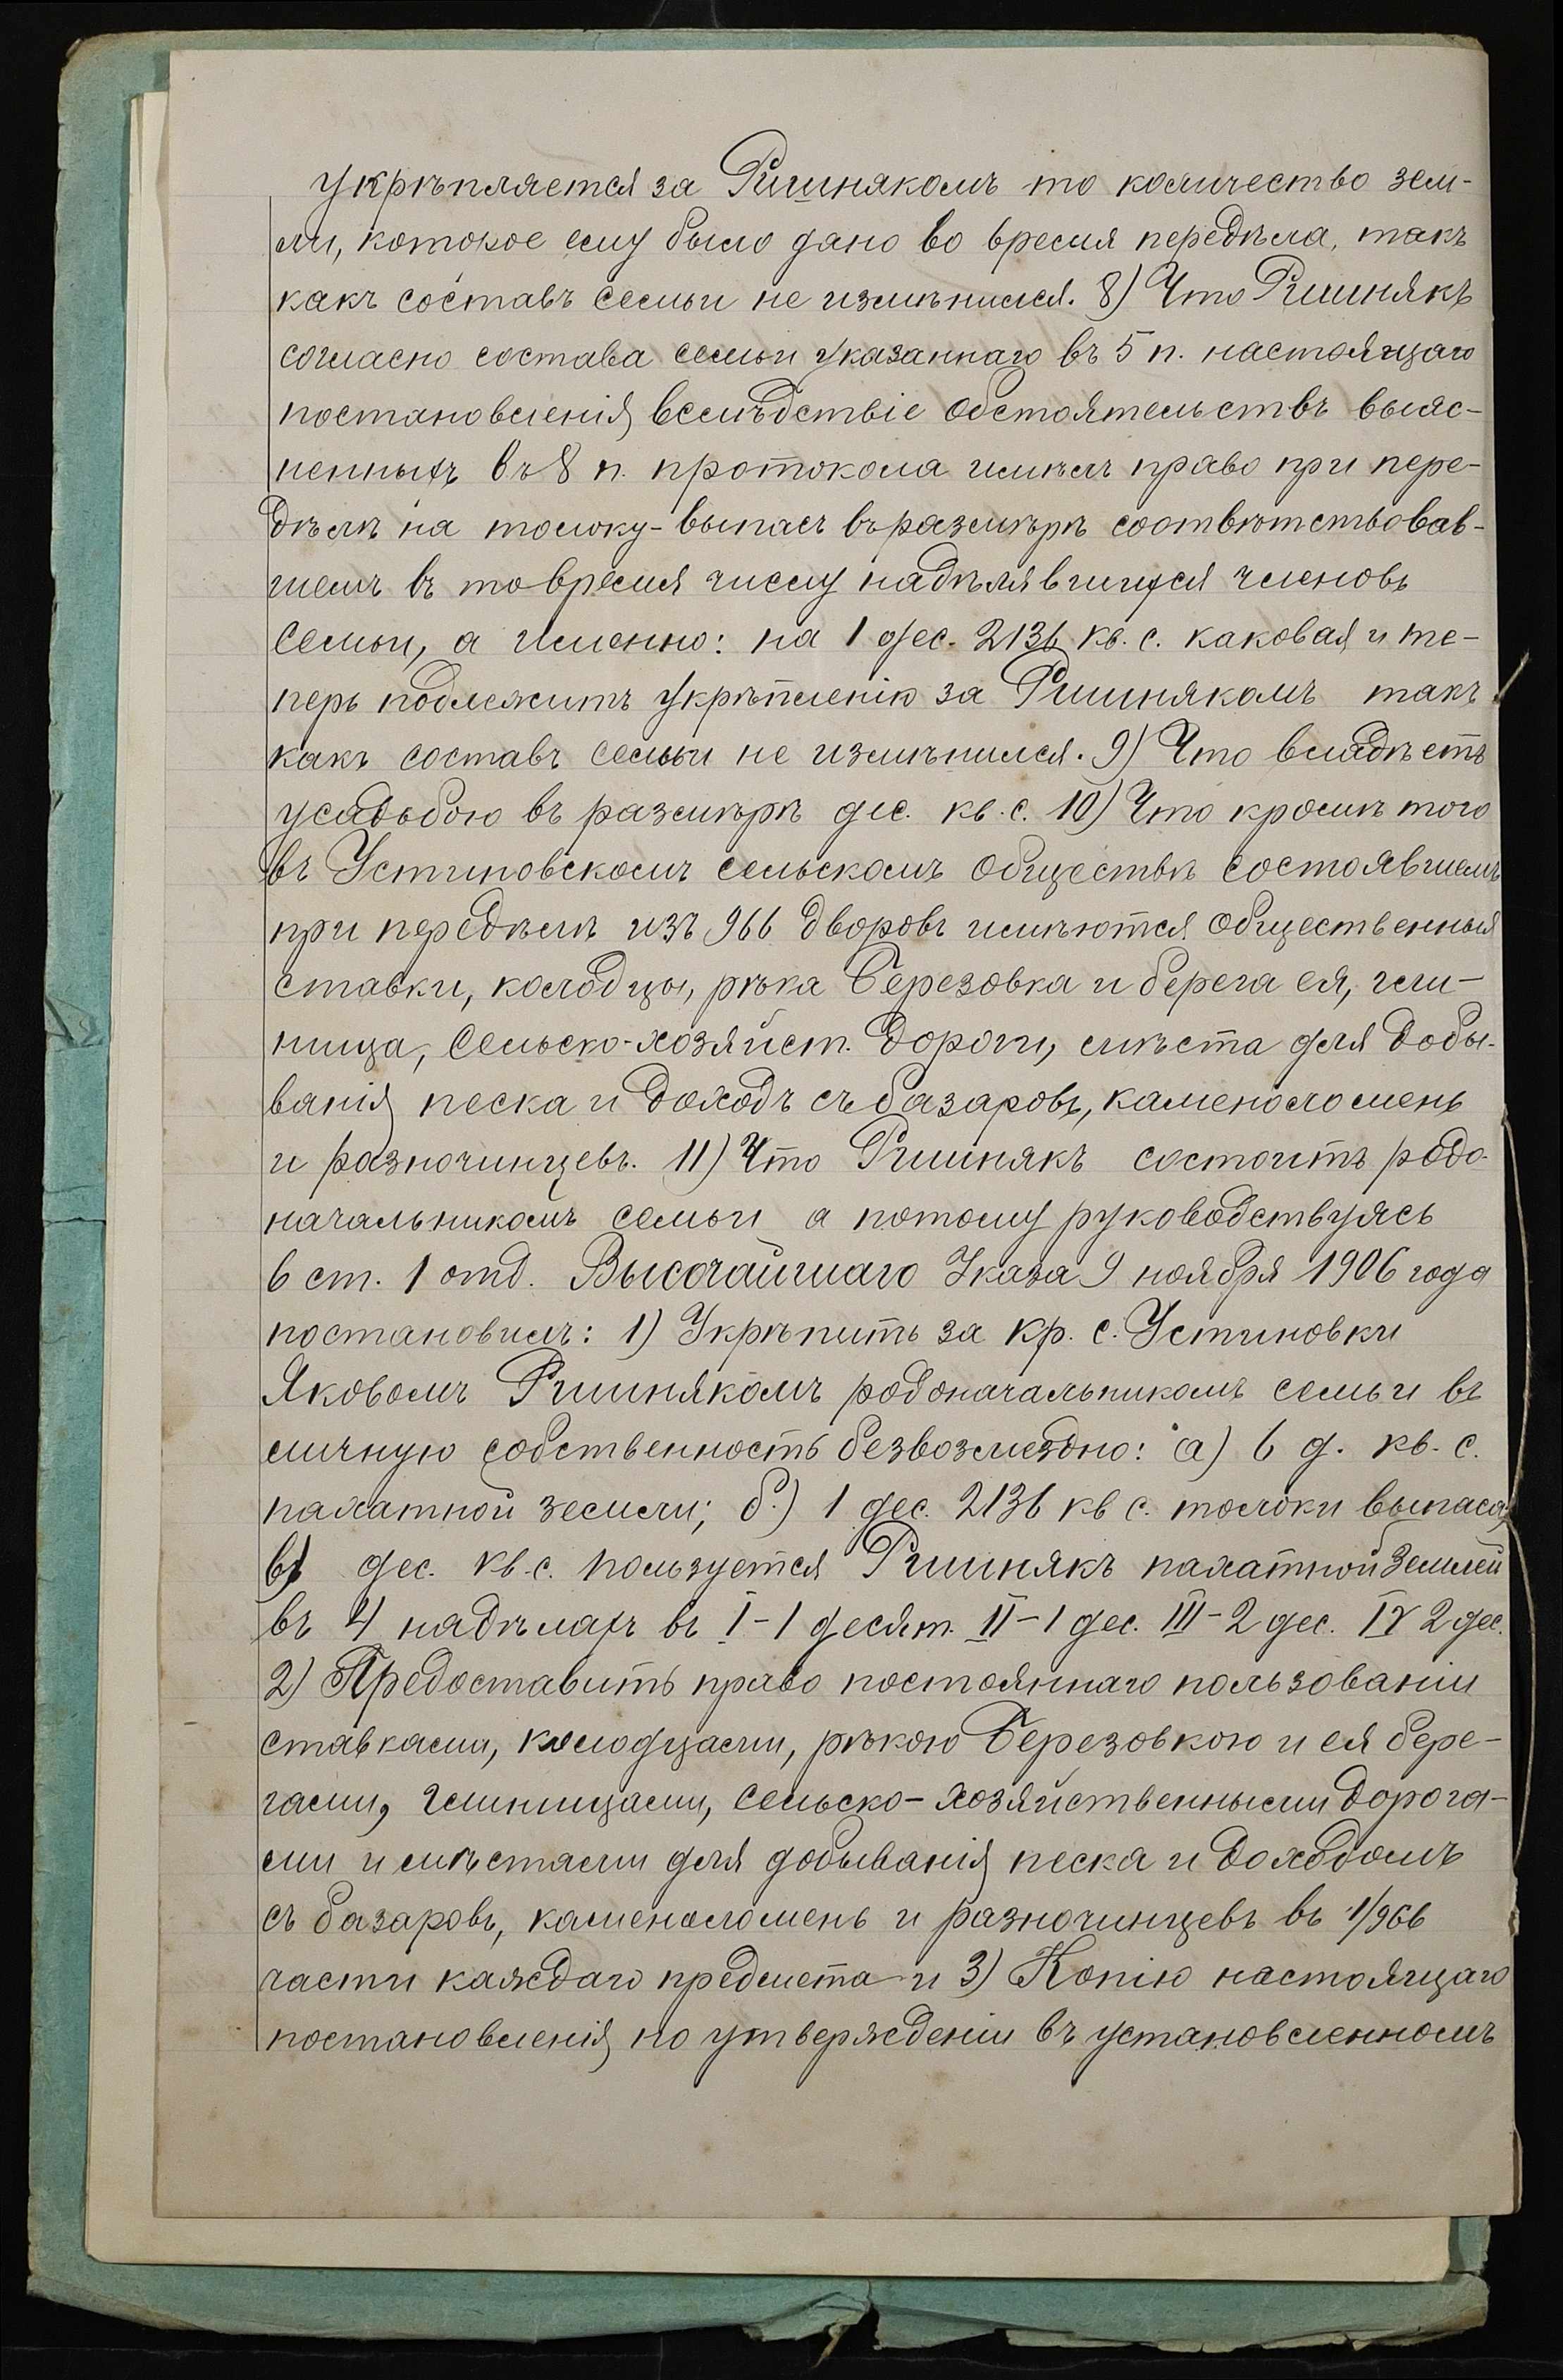 укрѣпляется за Ришнякомъ то количество зем-
ли, которое ему было дано во время передѣла, такъ
какъ составъ семьи не измѣнился. 8) Что Ришнякъ
согласно состава семьи указаннаго въ 5 п. настоящаго
постановленія, вслѣдствіе обстоятельствъ выяс-
ненныхъ въ 8 п. протокола имѣлъ право при пере-
дѣлѣ на толоку-выпасъ въ размѣрѣ соотвѣтствовав-
шемъ въ то время числу надѣлявшихся членовъ
семьи, а именно: на 1 дес. 2136 кв. с. каковая и те-
перь подлежитъ укрѣпленію за Ришнякомъ такъ
какъ составъ семьи не измѣнился. 9) Что владѣетъ
усадьбою въ размѣрѣ дес. кв. с. 10) Что кромѣ того
въ Устиновскомъ сельскомъ обществѣ состоявшемъ
при передѣлѣ изъ 966 дворовъ имѣются общественныя
ставки, колодцы, рѣка Березовка и берега ея, гли-
нища, сельско-хозяйст. дороги, мѣста для добы-
ванія песка и доходъ съ базаровъ, каменоломень
и разночинцевъ. 11) Что Ришнякъ состоитъ родо-
начальникомъ семьи а потому руководствуясь
6 ст. 1 отд. Высочайшаго Указа 9 ноября 1906 года
постановилъ: 1) Укрѣпить за кр. с. Устиновки
Яковомъ Ришнякомъ родоначальникомъ семьи въ
личную собственность безвозмездно: а) 6 д. кв. с.
пахатной земли; б.) 1 дес. 2136 кв с. толоки выпаса,
в) дес. кв. с. пользуется Ришнякъ пахатной землей
въ 4 надѣлахъ въ I-1 десят. II-1 дес. III-2 дес. IV 2 дес.
2) Предоставить право постояннаго пользованіи
ставками, колодцами, рѣкою Березовкою и ея бере-
гами, глинищами, сельско-хозяйственными дорога-
ми и мѣстами для добыванія песка и доходомъ
съ базаровъ, каменоломень и разночинцевъ въ 1/966
части каждаго предмета и 3) Копію настоящаго
постановленія, по утвержденіи въ установленномъ